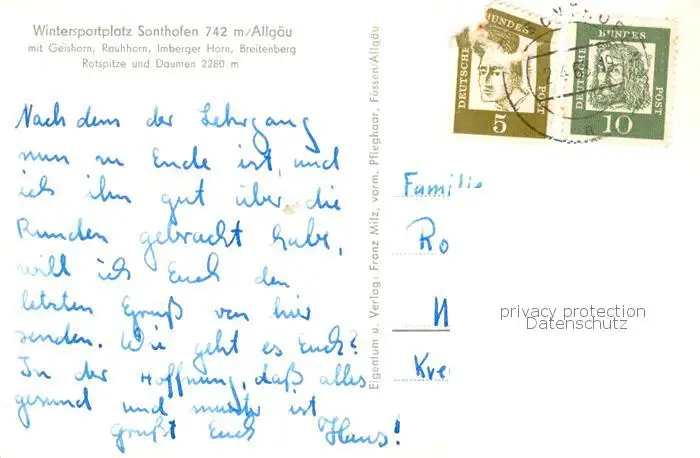 Wintersportplatz Sonthofen 742 m/Allgäu
mit Geishorn, Rauhhorn, Imberger Horn, Breitenberg
Rotspitze und Daumen 2280 m
Nach dem der Lehrgang
nun zu Ende ist, und
ich ihn gut über die
Runden gebracht habe,
will ich Euch den
letzten Gruß von hier
senden. Wie geht es Euch?
In der Hoffnung, daß alles
gesund und munter ist
grüßt Euch Hans!
Eigentum u. Verlag: Franz Milz, vorm. Pfleghaar, Füssen/Allgäu
DEUTSCHE BUNDES POST
5
DEUTSCHE BUNDES POST
10
Familie
Ro
Kre
privacy protection
Datenschutz